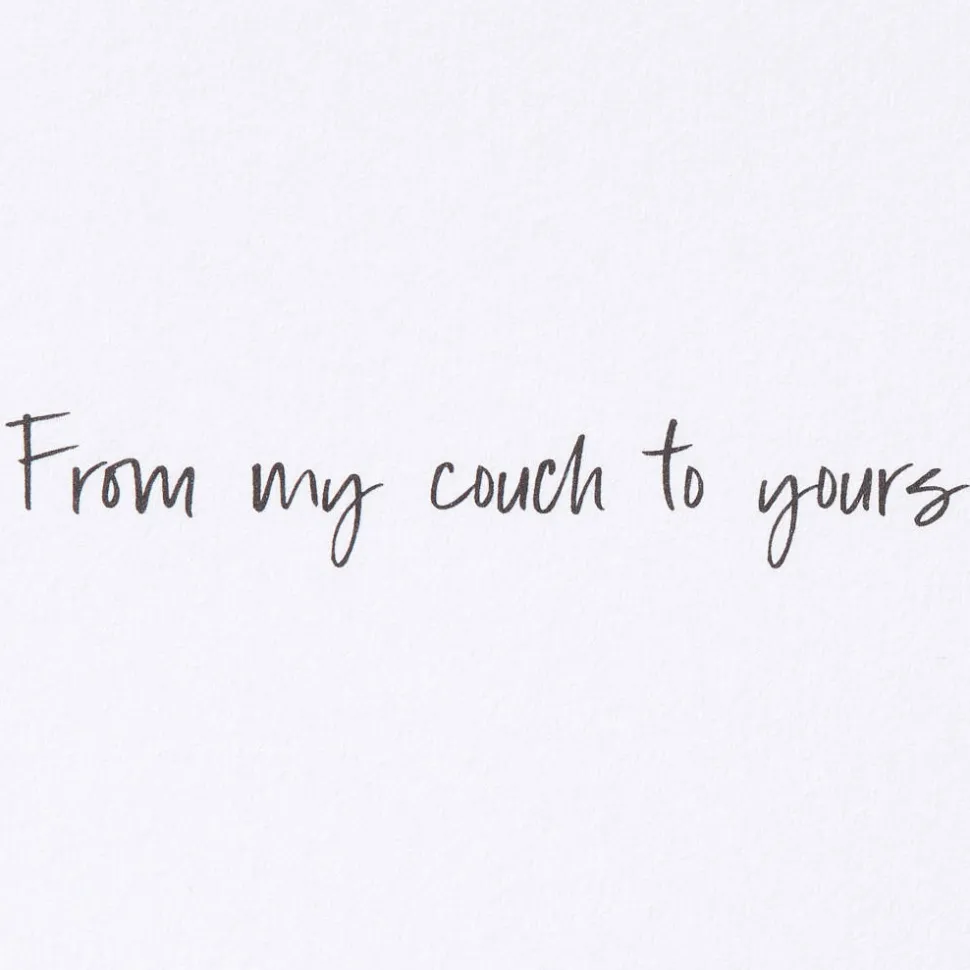 From my couch to yours